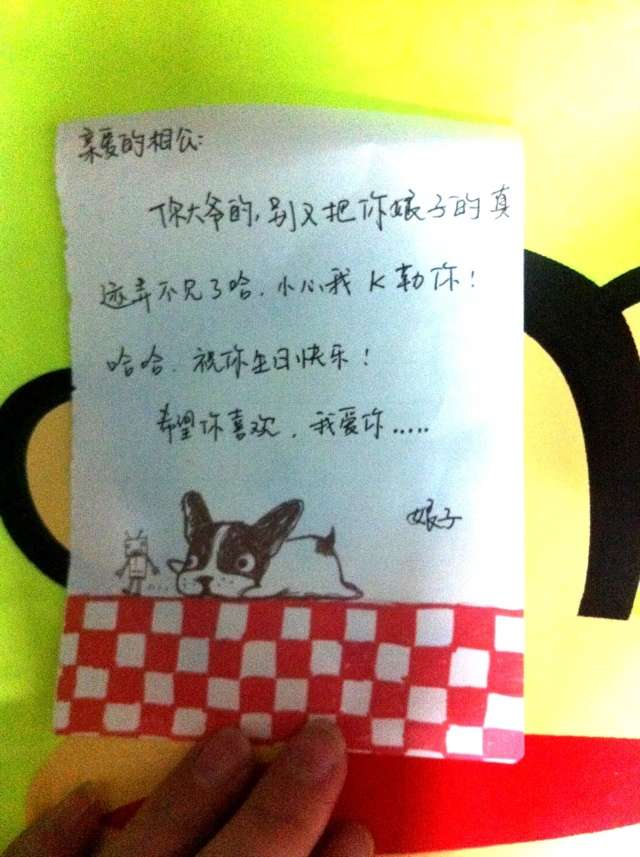 亲爱的相公:
你大爷的,别又把你娘子的真
迹弄不见了哈.小心我K勒你!
哈哈.祝你生日快乐!
希望你喜欢.我爱你.....
娘子